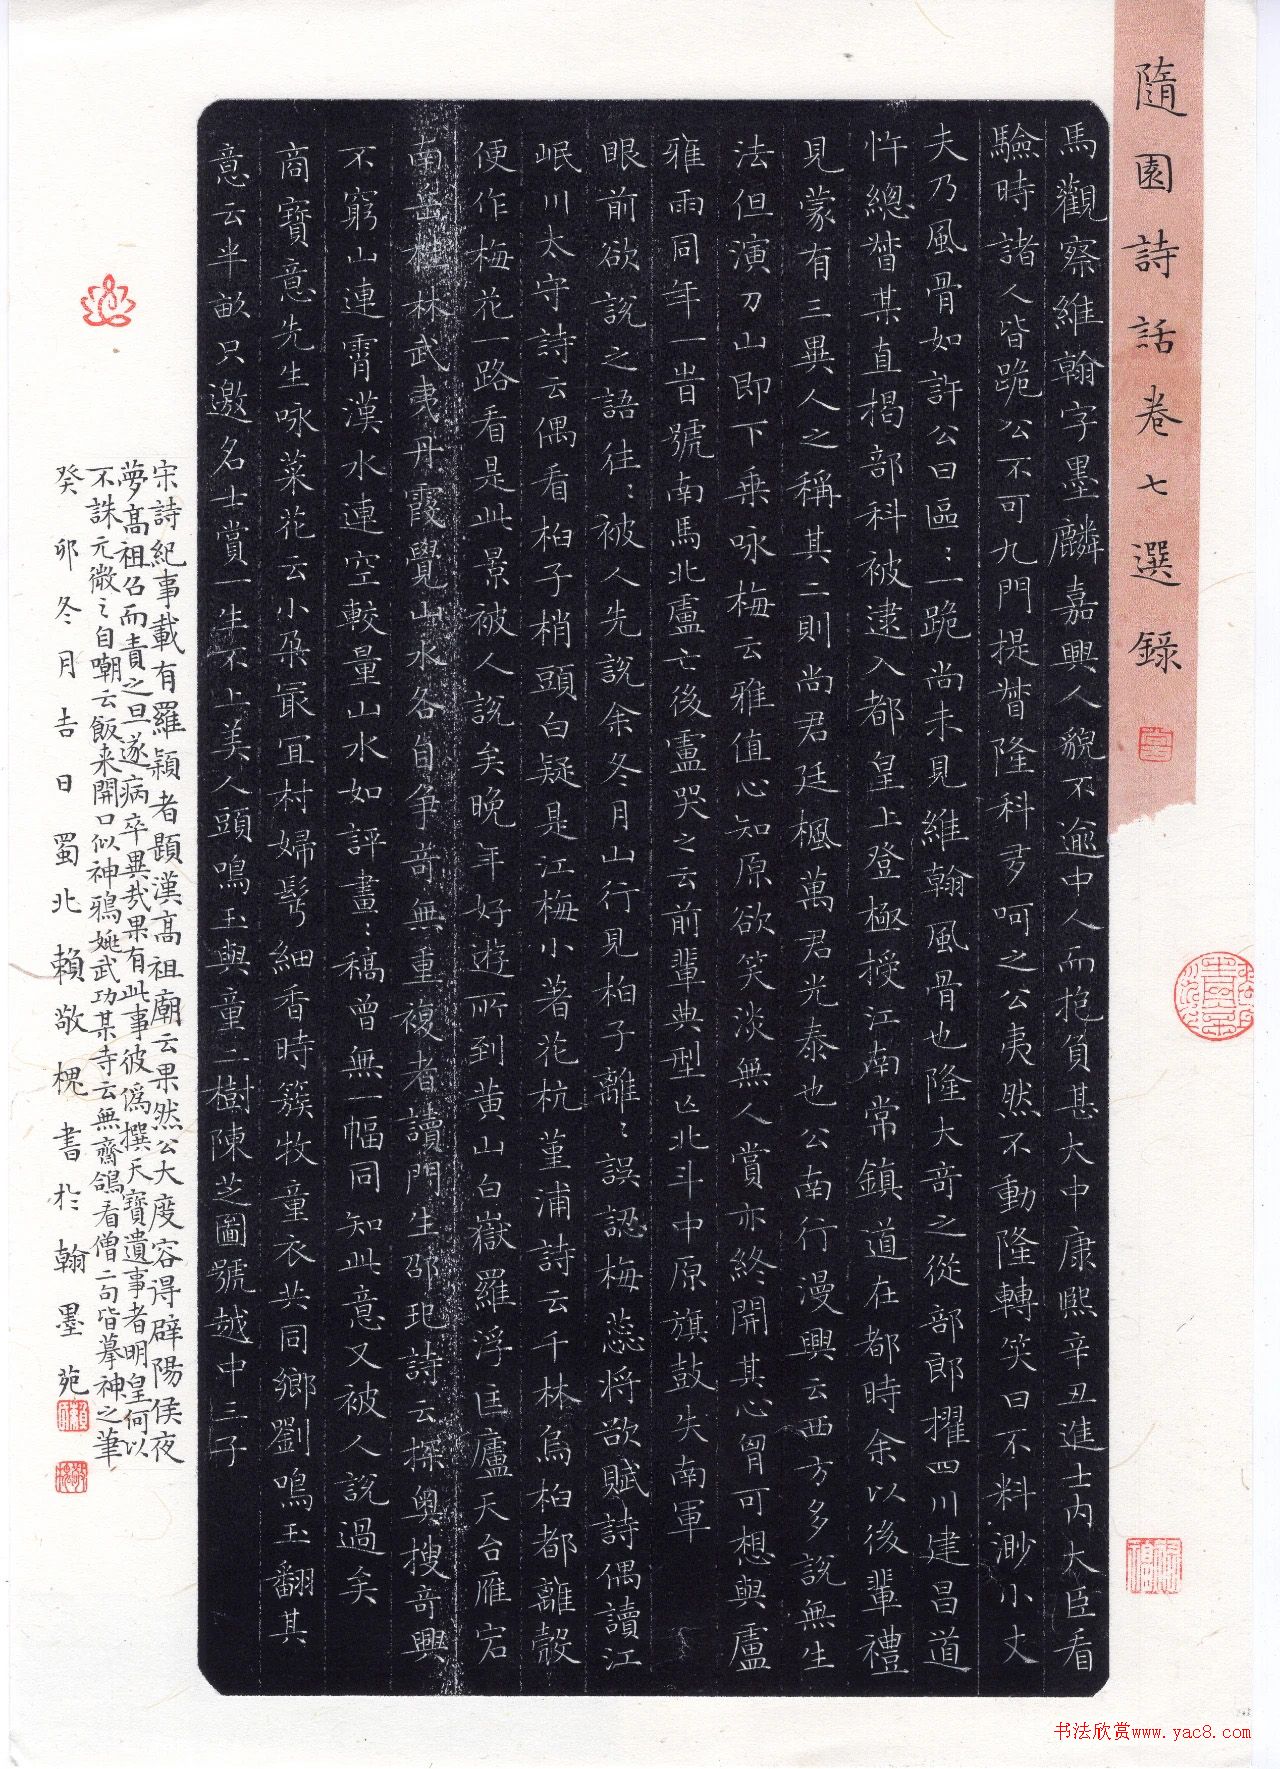 隨園詩話卷七選錄
馬觀察維翰字墨麟嘉興人貌不逾中人而抱負甚大中康熙辛丑進士內大臣看
驗時諸人皆跪公不可九門提督隆科多呵之公夷然不動隆轉笑曰不料渺小丈
夫乃風骨如許公曰區〻一跪尚未見維翰風骨也隆大奇之從部郎擢四川建昌道
忤總督某直揭部科被逮入都皇上登極授江南常鎮道在都時余以後輩禮
見蒙有三異人之稱其二則尚君廷楓萬君光泰也公南行漫興云西方多說無生
法但演刀山即下乘咏梅云雅值心知原欲笑淡無人賞亦終開其心胷可想與盧
雅雨同年一時號南馬北盧亡後盧哭之云前輩典型亡北斗中原旗鼓失南軍
眼前欲說之語往〻被人先說余冬月山行見桕子離〻誤認梅蕊將欲賦詩偶讀江
岷川太守詩云偶看桕子梢頭白疑是江梅小著花杭堇浦詩云千林烏桕都離殼
便作梅花一路看是此景被人說矣晚年好遊所到黃山白嶽羅浮匡廬天台雁宕
南岳桂林武夷丹霞覺山水各自爭奇無重複者讀門生邵玘詩云探奧搜奇興
不窮山連霄漢水連空較量山水如評畫〻稿曾無一幅同知此意又被人說過矣
商寶意先生咏菜花云小朶最宜村婦髩細香時簇牧童衣共同鄉劉鳴玉翻其
意云半畝只邀名士賞一生不上美人頭鳴玉與童二樹陳芝圖號越中三子
宋詩紀事載有羅穎者題漢高祖廟云果然公大度容得辟陽侯夜
夢高祖召而責之旦遂病卒異哉果有此事彼僞撰天寶遺事者明皇何以
不誅元微之自嘲云飯来開口似神鴉姚武功某寺云無齋鴿看僧二句皆摹神之筆
癸卯冬月吉日蜀北賴敬槐書於翰墨苑
书法欣赏www.yac8.com